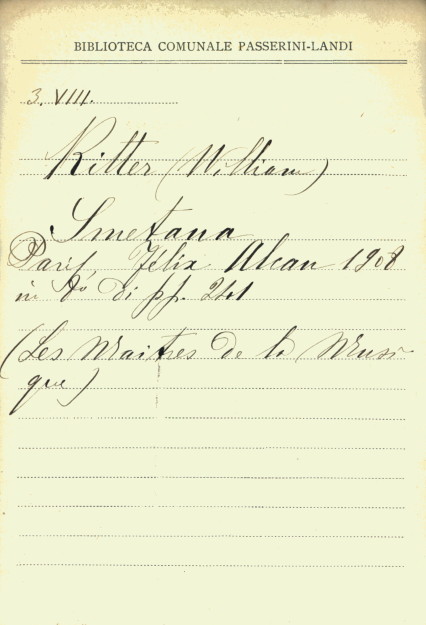 BIBLIOTECA COMUNALE PASSERINI-LANDI
3. VIII.
Ritter (William)
Smetana
Paris, Félix Alcan 1908
in 8° di pp. 241
(Les Maitres de la Musi-
que)